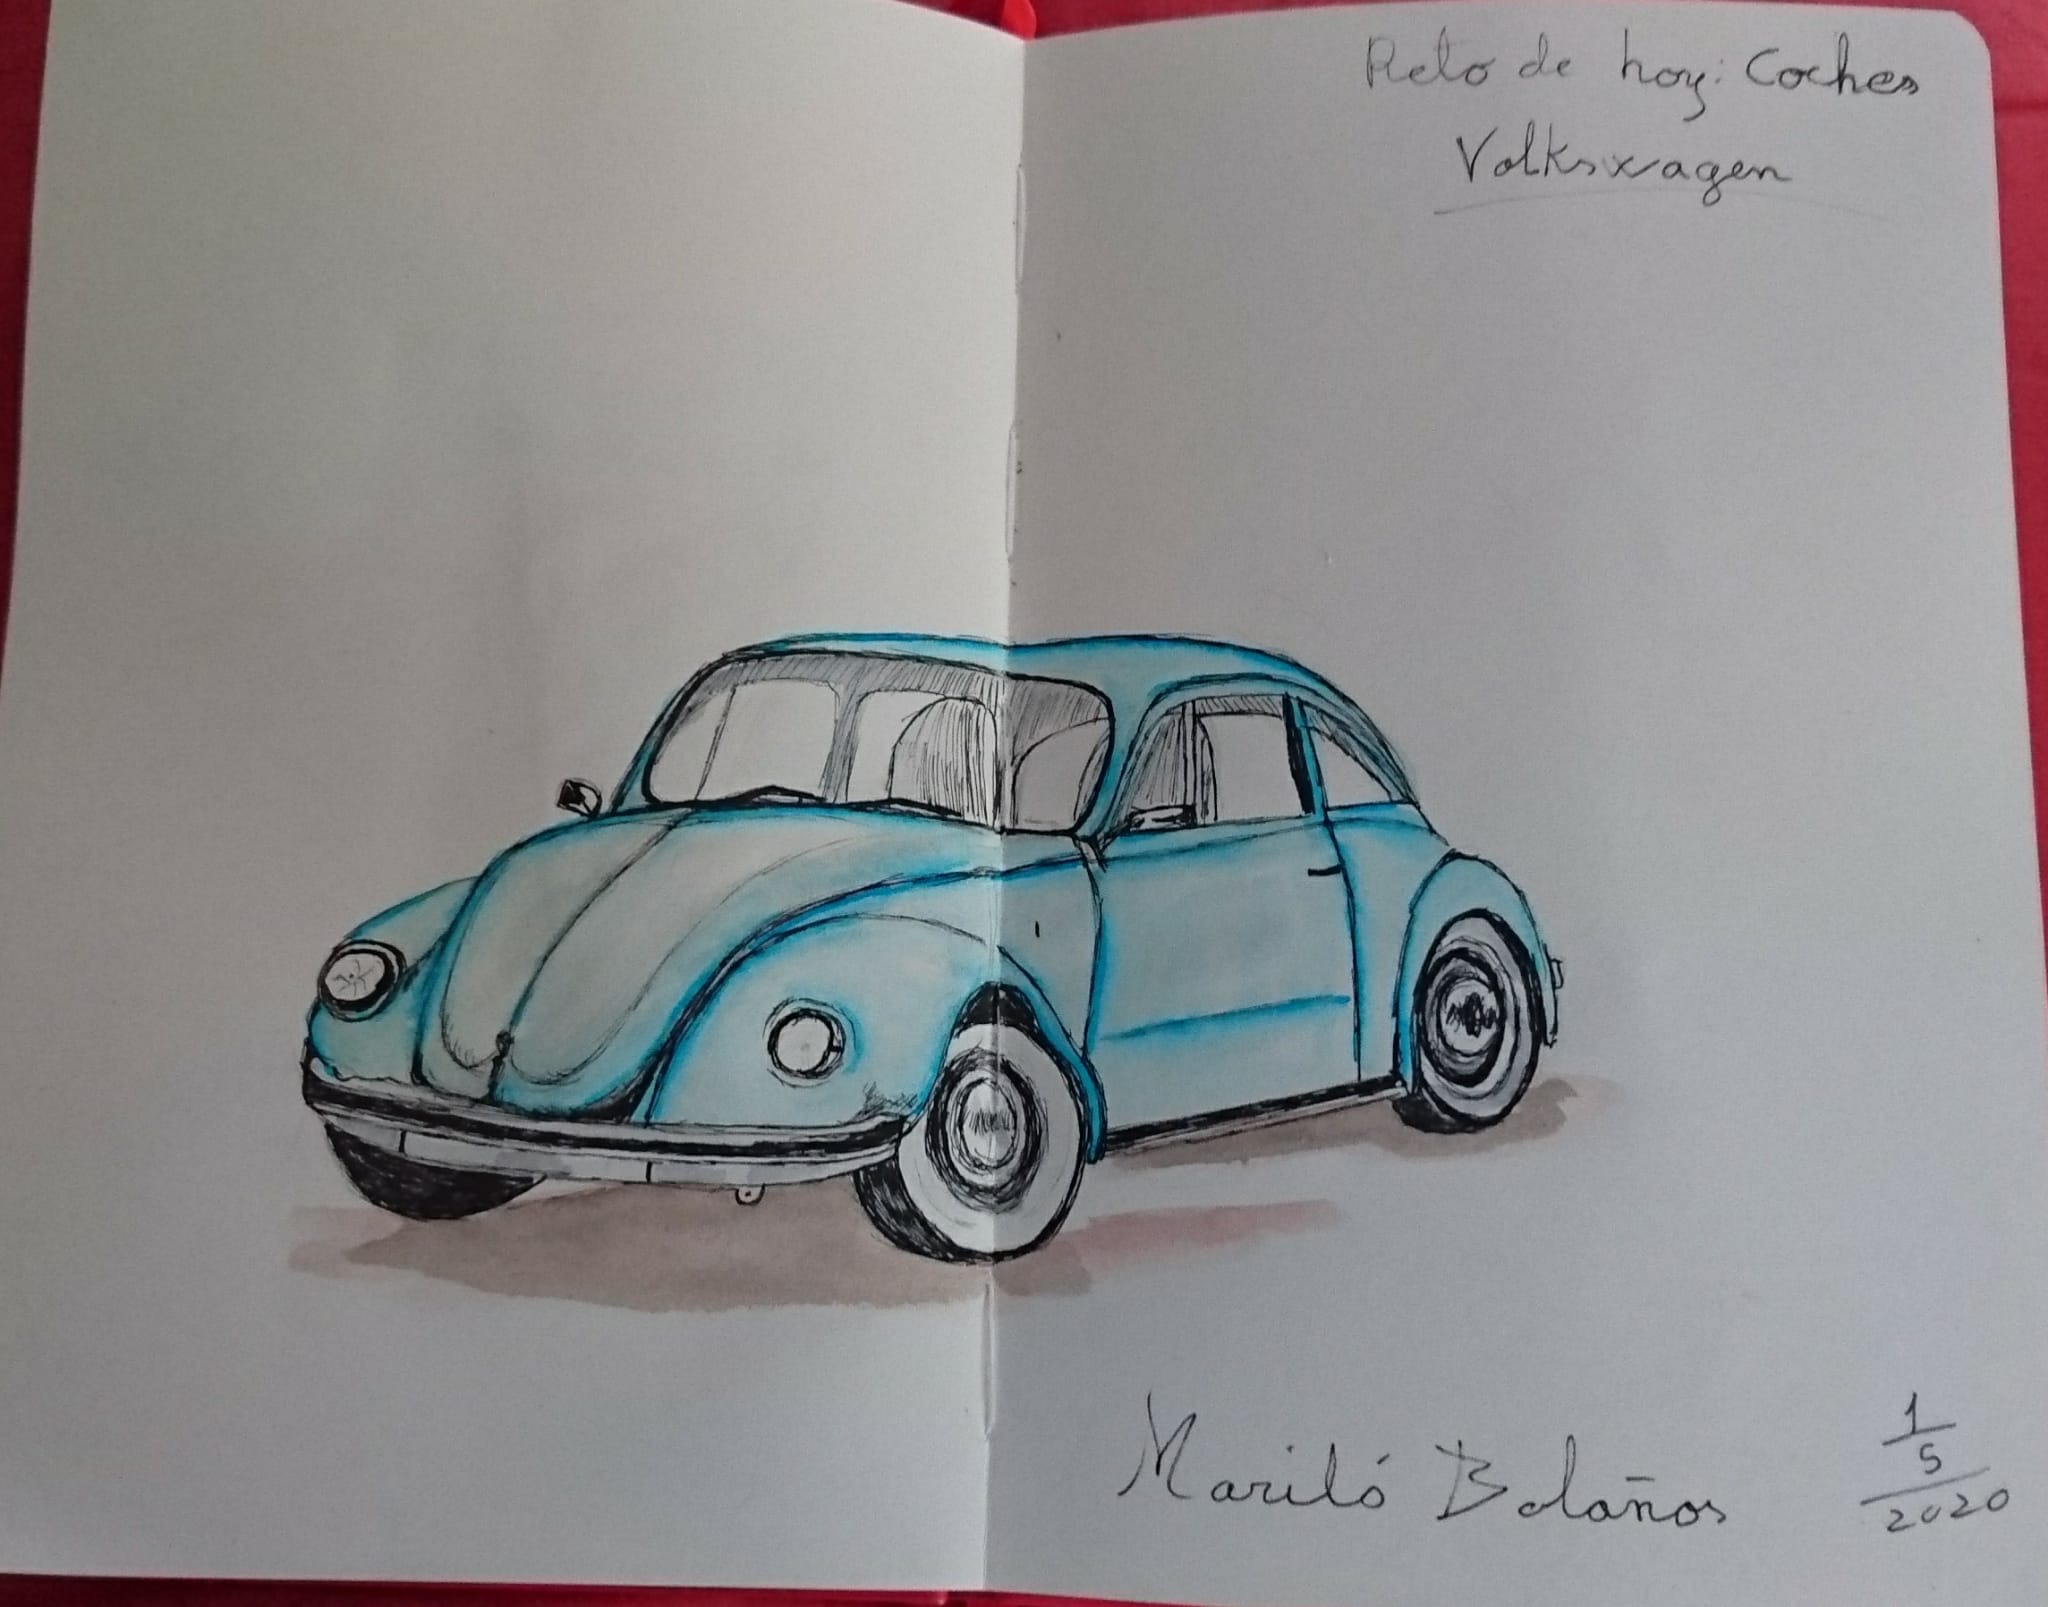 Reto de hoy: Coches
Volkswagen
Mariló Bolaños
1
5
2020